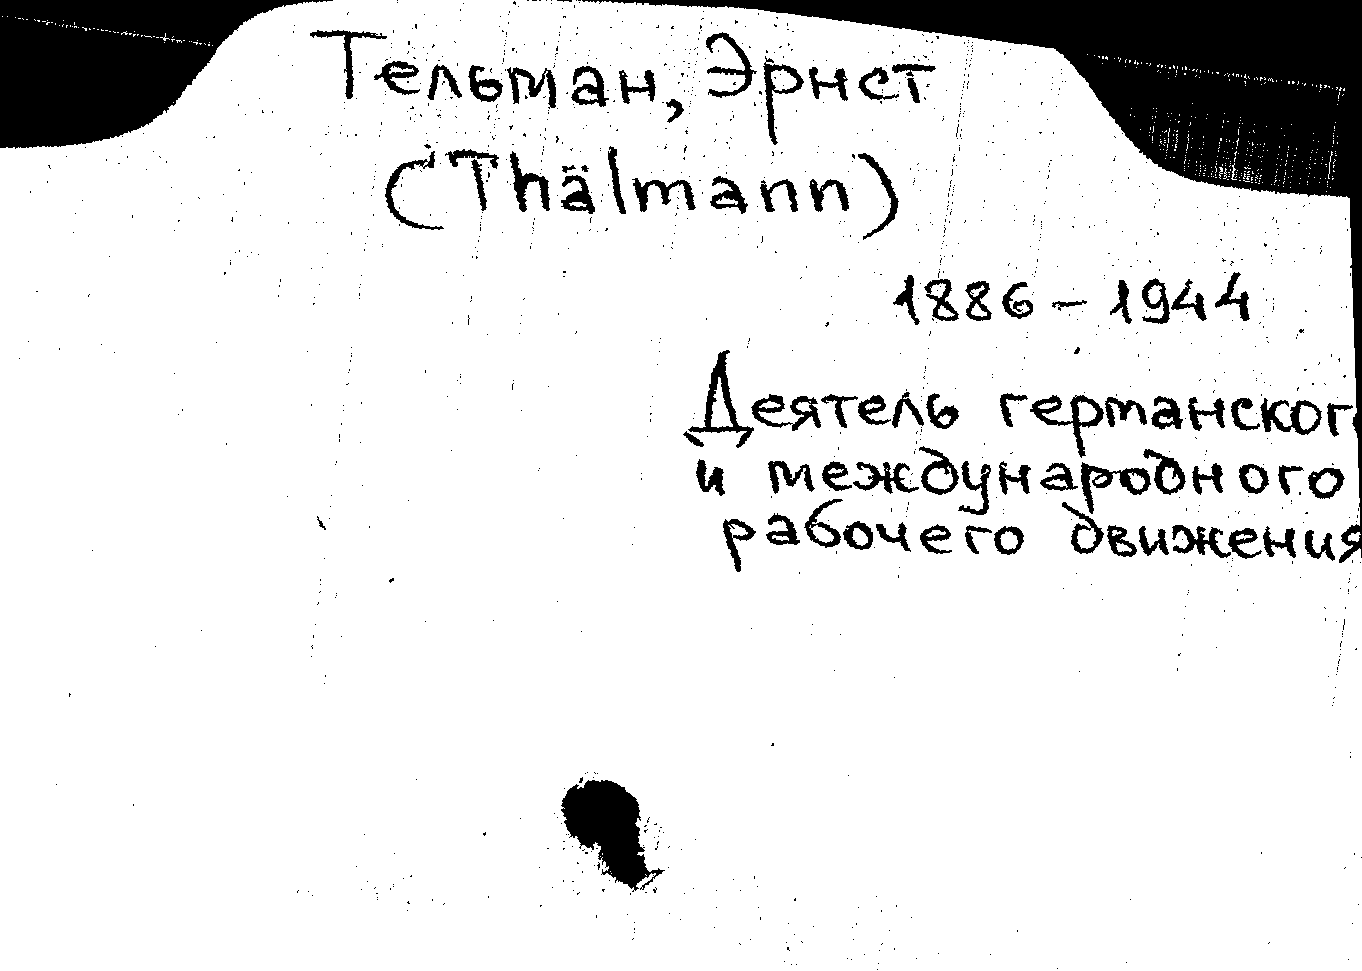 Тельман, Эрнст
(Thälmann)
1886 – 1944
Деятель германского
и международного
рабочего движения